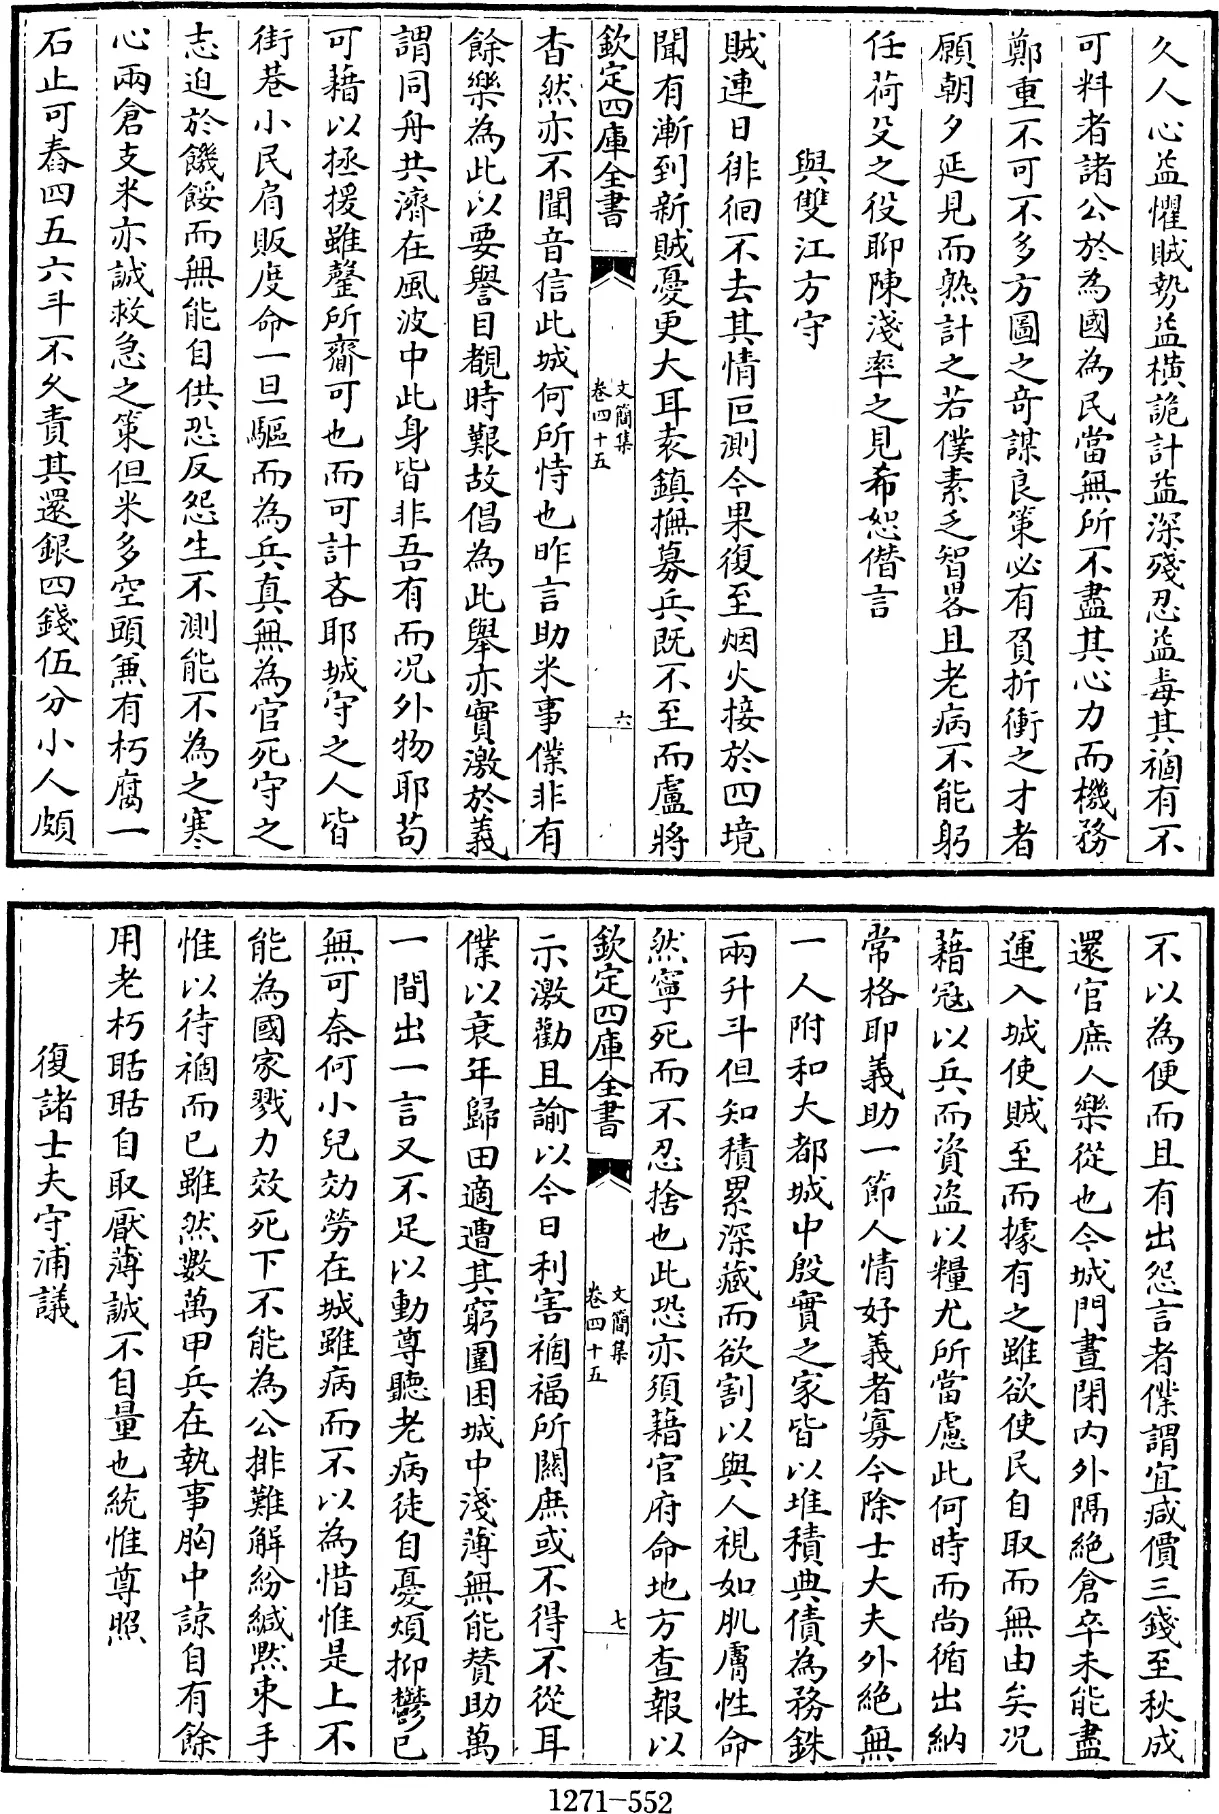 久人心益懼賊勢益橫詭計益深殘忍益毒其禍有不
可料者諸公於為國為民當無所不盡其心力而機務
鄭重不可不多方圖之奇謀良策必有負折衝之才者
願朝夕延見而熟計之若僕素乏智畧且老病不能躬
任荷殳之役聊陳淺率之見希恕僭言
與雙江方守
賊連日徘徊不去其情叵測今果復至烟火接於四境
聞有漸到新賊憂更大耳袁鎮撫募兵既不至而盧將
欽定四庫全書
文簡集
卷四十五
六
杳然亦不聞音信此城何所恃也昨言助米事僕非有
餘樂為此以要譽目覩時艱故倡為此舉亦實激於義
謂同舟共濟在風波中此身皆非吾有而况外物耶苟
可藉以拯援雖罄所齎可也而可計吝耶城守之人皆
街巷小民肩販度命一旦驅而為兵真無為官死守之
志迫於饑餒而無能自供恐反怨生不測能不為之寒
心兩倉支米亦誠救急之策但米多空頭兼有朽腐一
石止可舂四五六斗不乆責其還銀四錢伍分小人頗
不以為便而且有出怨言者僕謂宜減價三錢至秋成
還官庶人樂從也今城門晝閉内外隔絶倉卒未能盡
運入城使賊至而據有之雖欲使民自取而無由矣况
藉冦以兵而資盗以糧尤所當慮此何時而尚循出納
常格耶義助一節人情好義者寡今除士大夫外絶無
一人附和大都城中殷實之家皆以堆積典債為務銖
兩升斗但知積累深藏而欲割以與人視如肌膚性命
然寧死而不忍捨也此恐亦須藉官府命地方查報以
欽定四庫全書
文簡集
卷四十五
七
示激勸且諭以今日利害禍福所關庶或不得不從耳
僕以衰年歸田適遭其窮圍困城中淺薄無能贊助萬
一間出一言又不足以動尊聽老病徒自憂煩抑鬱已
無可奈何小兒効勞在城雖病而不以為惜惟是上不
能為國家戮力效死下不能為公排難解紛緘黙束手
惟以待禍而已雖然數萬甲兵在執事胸中諒自有餘
用老朽聒聒自取厭薄誠不自量也統惟尊照
復諸士夫守浦議
1271-552